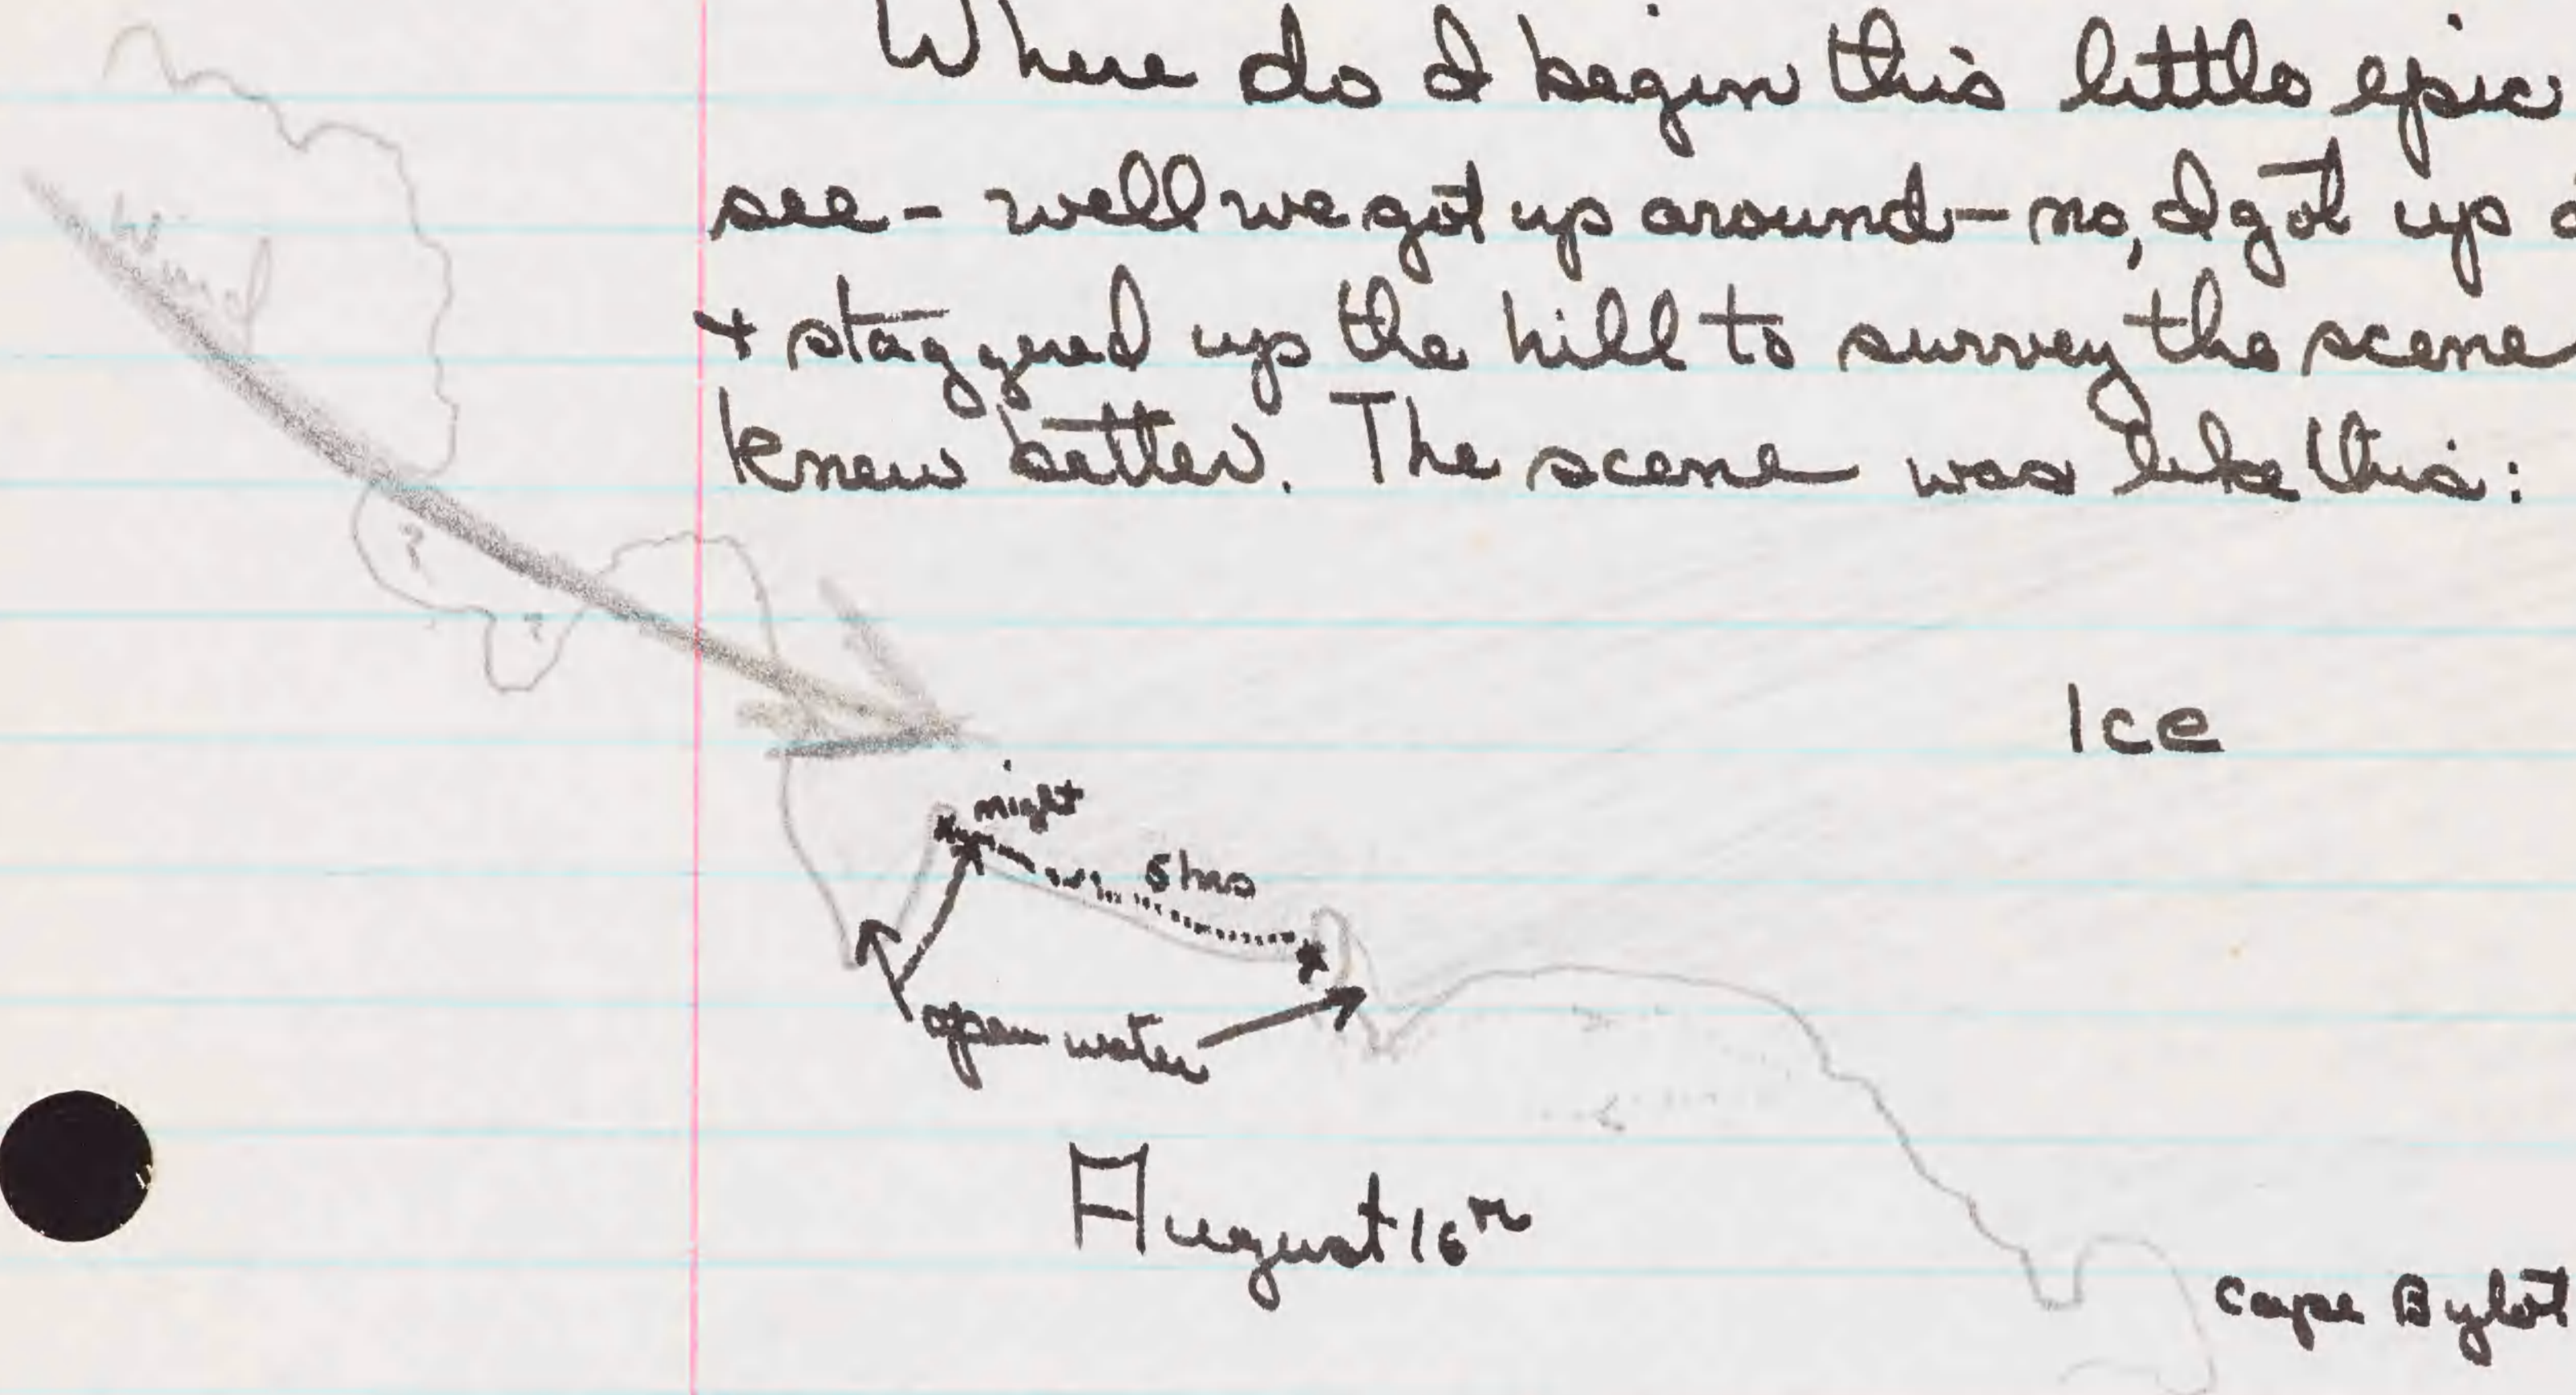 Where do I begin this little epic
see - well we got up around - no, I got up
+ staggered up the hill to survey the scene
knew better. The scene was like this:
Wind
?
?
Ice
night
5 hrs
open water
August 16th
Cape Bylot